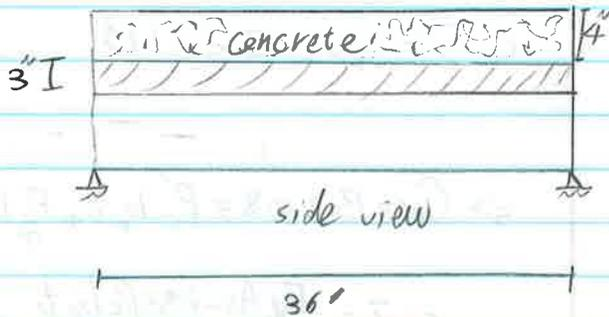 concrete
4"
3"
side view
36'